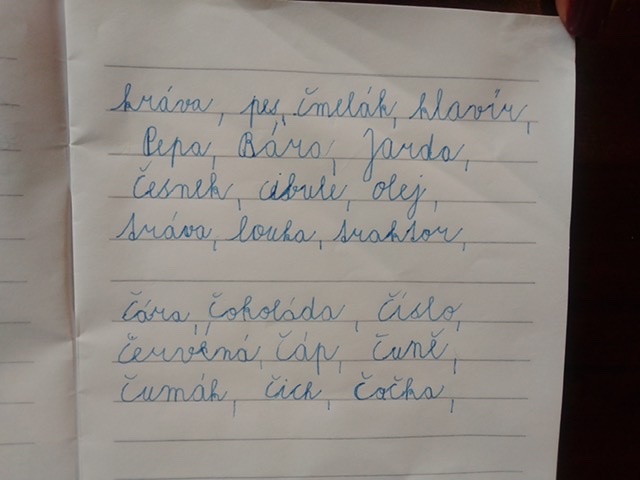 kráva, pes, čmelák, klavír,
Pepa, Bára, Jarda,
česnek, cibule, olej,
tráva, louka, traktor,
čára, čokoláda, číslo,
červěná, čáp, čuně,
čumák, čich, čočka,